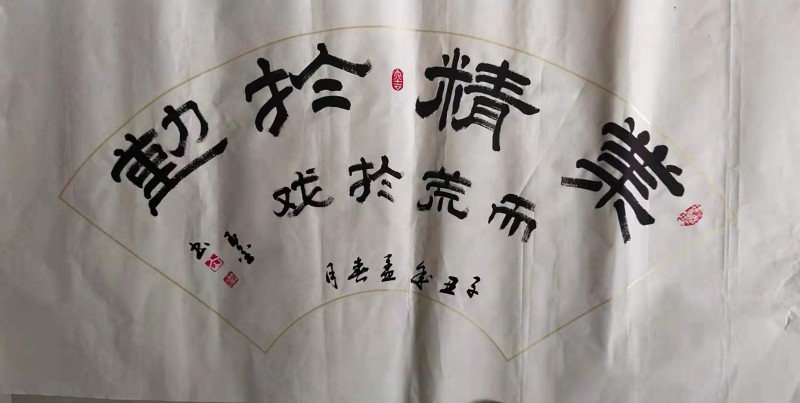 業精於勤
而荒於戏
丑年孟春月
书